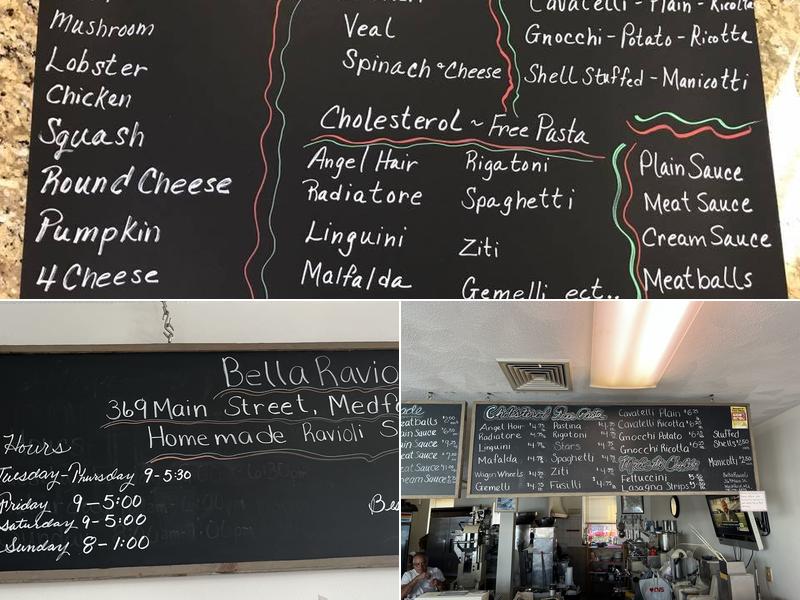 Mushroom
Lobster
Chicken
Squash
Round Cheese
Pumpkin
4 Cheese
Veal
Spinach & Cheese
Cavatelli - Plain - Ricotta
Gnocchi - Potato - Ricotta
Shell Stuffed - Manicotti
Cholesterol ~ Free Pasta
Angel Hair Rigatoni
Radiatore Spaghetti
Linguini Ziti
Malfalda Gemelli ect..
Plain Sauce
Meat Sauce
Cream Sauce
Meatballs
Bella Ravio
369 Main Street, Medf
Homemade Ravioli S
Hours
Tuesday - Thursday 9 - 5:30
Friday 9 - 5:00
Saturday 9 - 5:00
Sunday 8 - 1:00
Bes
Cholesterol Free Pasta
Angel Hair
Radiatore
Linguini
Mafalda
Wagon Wheels
Gemelli
Pastina
Rigatoni
Stars
Spaghetti
Ziti
Fusilli
Cavatelli Plain
Cavatelli Ricotta
Gnocchi Potato
Gnocchi Ricotta
Fettuccini
Lasagna Strips
Stuffed
Shells
Manicotti
CVS